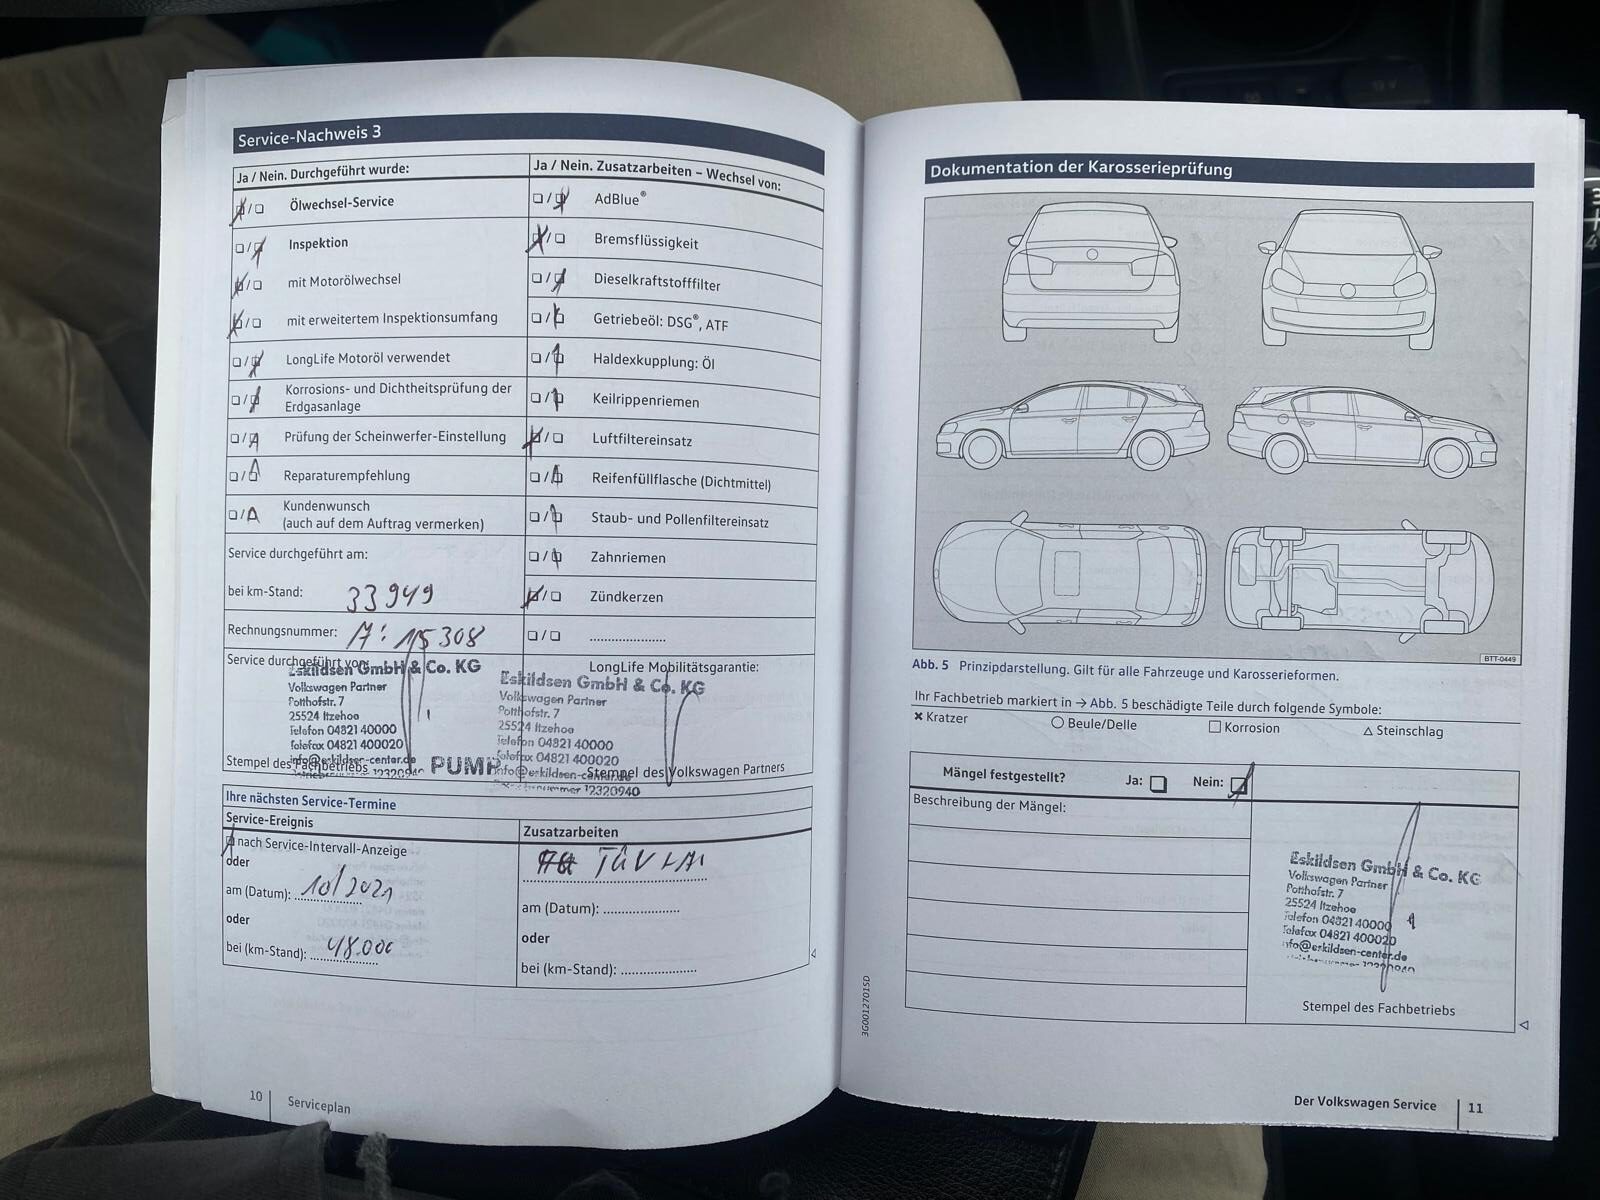 Service-Nachweis 3
Ja / Nein. Durchgeführt wurde:
Ölwechsel-Service
Inspektion
mit Motorölwechsel
mit erweitertem Inspektionsumfang
LongLife Motoröl verwendet
Korrosions- und Dichtheitsprüfung der
Erdgasanlage
Prüfung der Scheinwerfer-Einstellung
Reparaturempfehlung
Kundenwunsch
(auch auf dem Auftrag vermerken)
Service durchgeführt am:
bei km-Stand: 33949
Rechnungsnummer: 115308
Ja / Nein. Zusatzarbeiten – Wechsel von:
AdBlue®
Bremsflüssigkeit
Dieselkraftstofffilter
Getriebeöl: DSG®, ATF
Haldexkupplung: Öl
Keilrippenriemen
Luftfiltereinsatz
Reifenfüllflasche (Dichtmittel)
Staub- und Pollenfiltereinsatz
Zahnriemen
Zündkerzen
Service durchgeführt von:
Eskildsen GmbH & Co. KG
Volkswagen Partner
Potthofstr. 7
25524 Itzehoe
Telefon 04821 40000
Telefax 04821 400020
info@eskildsen-center.de
12320940
Stempel des Fachbetriebs
PUMP
LongLife Mobilitätsgarantie:
Eskildsen GmbH & Co. KG
Volkswagen Partner
Potthofstr. 7
25524 Itzehoe
Telefon 04821 40000
Telefax 04821 400020
info@eskildsen-center.de
12320940
Stempel des Volkswagen Partners
Ihre nächsten Service-Termine
Service-Ereignis
nach Service-Intervall-Anzeige
oder
am (Datum): 10/2021
oder
bei (km-Stand): 48.000
Zusatzarbeiten
TÜV + AU
am (Datum):
oder
bei (km-Stand):
10 Serviceplan
Dokumentation der Karosserieprüfung
BTT-0449
Abb. 5 Prinzipdarstellung. Gilt für alle Fahrzeuge und Karosserieformen.
Ihr Fachbetrieb markiert in → Abb. 5 beschädigte Teile durch folgende Symbole:
Kratzer Beule/Delle Korrosion Steinschlag
Mängel festgestellt? Ja: Nein:
Beschreibung der Mängel:
Eskildsen GmbH & Co. KG
Volkswagen Partner
Potthofstr. 7
25524 Itzehoe
Telefon 04821 40000
Telefax 04821 400020
info@eskildsen-center.de
Stempel des Fachbetriebs
3G0012701SD
Der Volkswagen Service 11